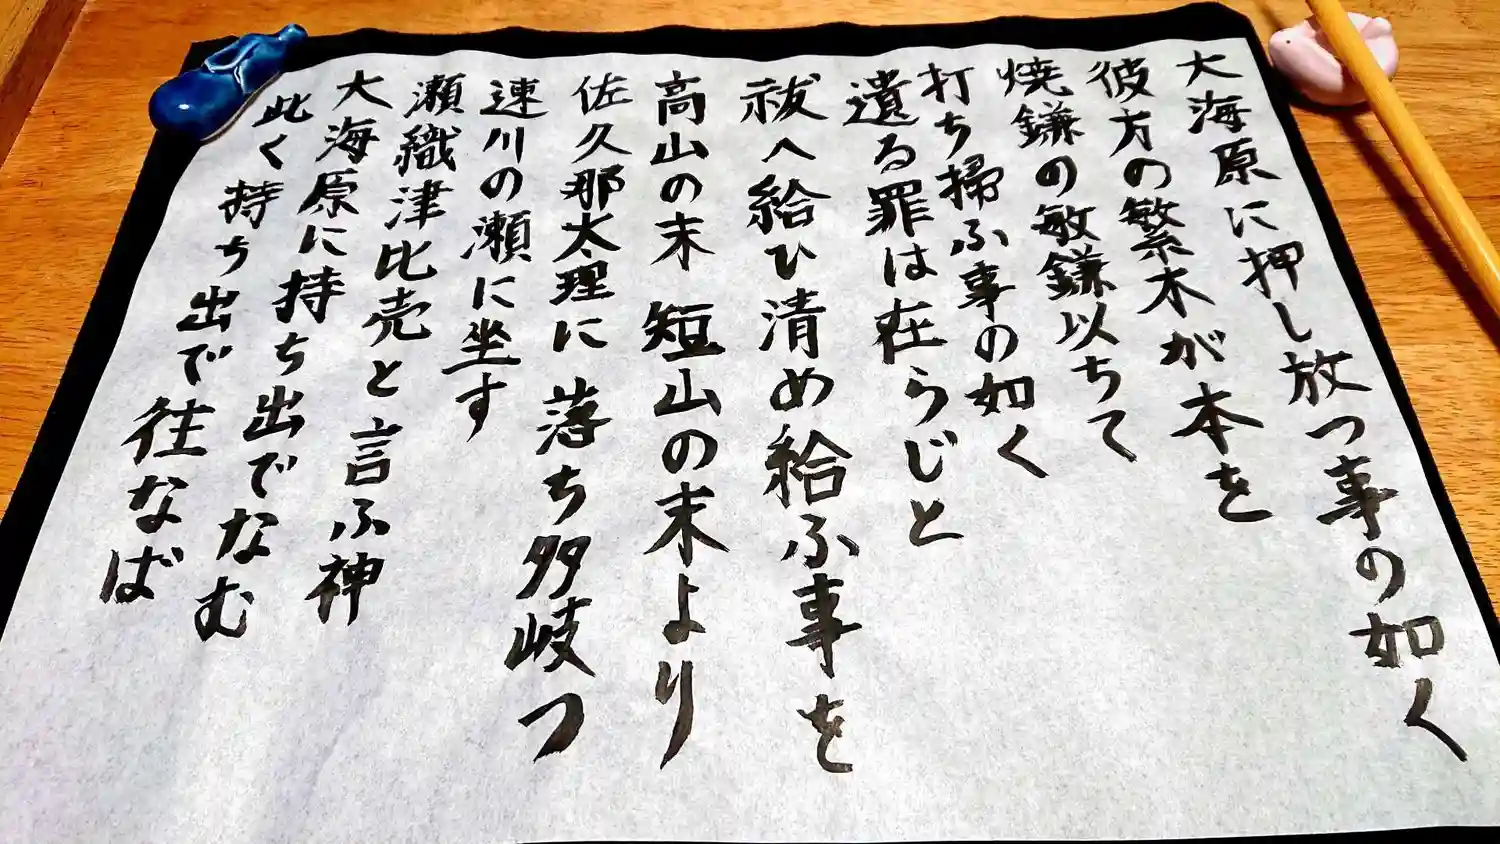 大海原に押し放つ事の如く
彼方の繁木が本を
焼鎌の敏鎌以ちて
打ち掃ふ事の如く
遺る罪は在らじと
祓へ給ひ清め給ふ事を
高山の末 短山の末より
佐久那太理に 落ち多岐つ
速川の瀬に坐す
瀬織津比売と 言ふ神
大海原に持ち出でなむ
此く持ち出で往なば